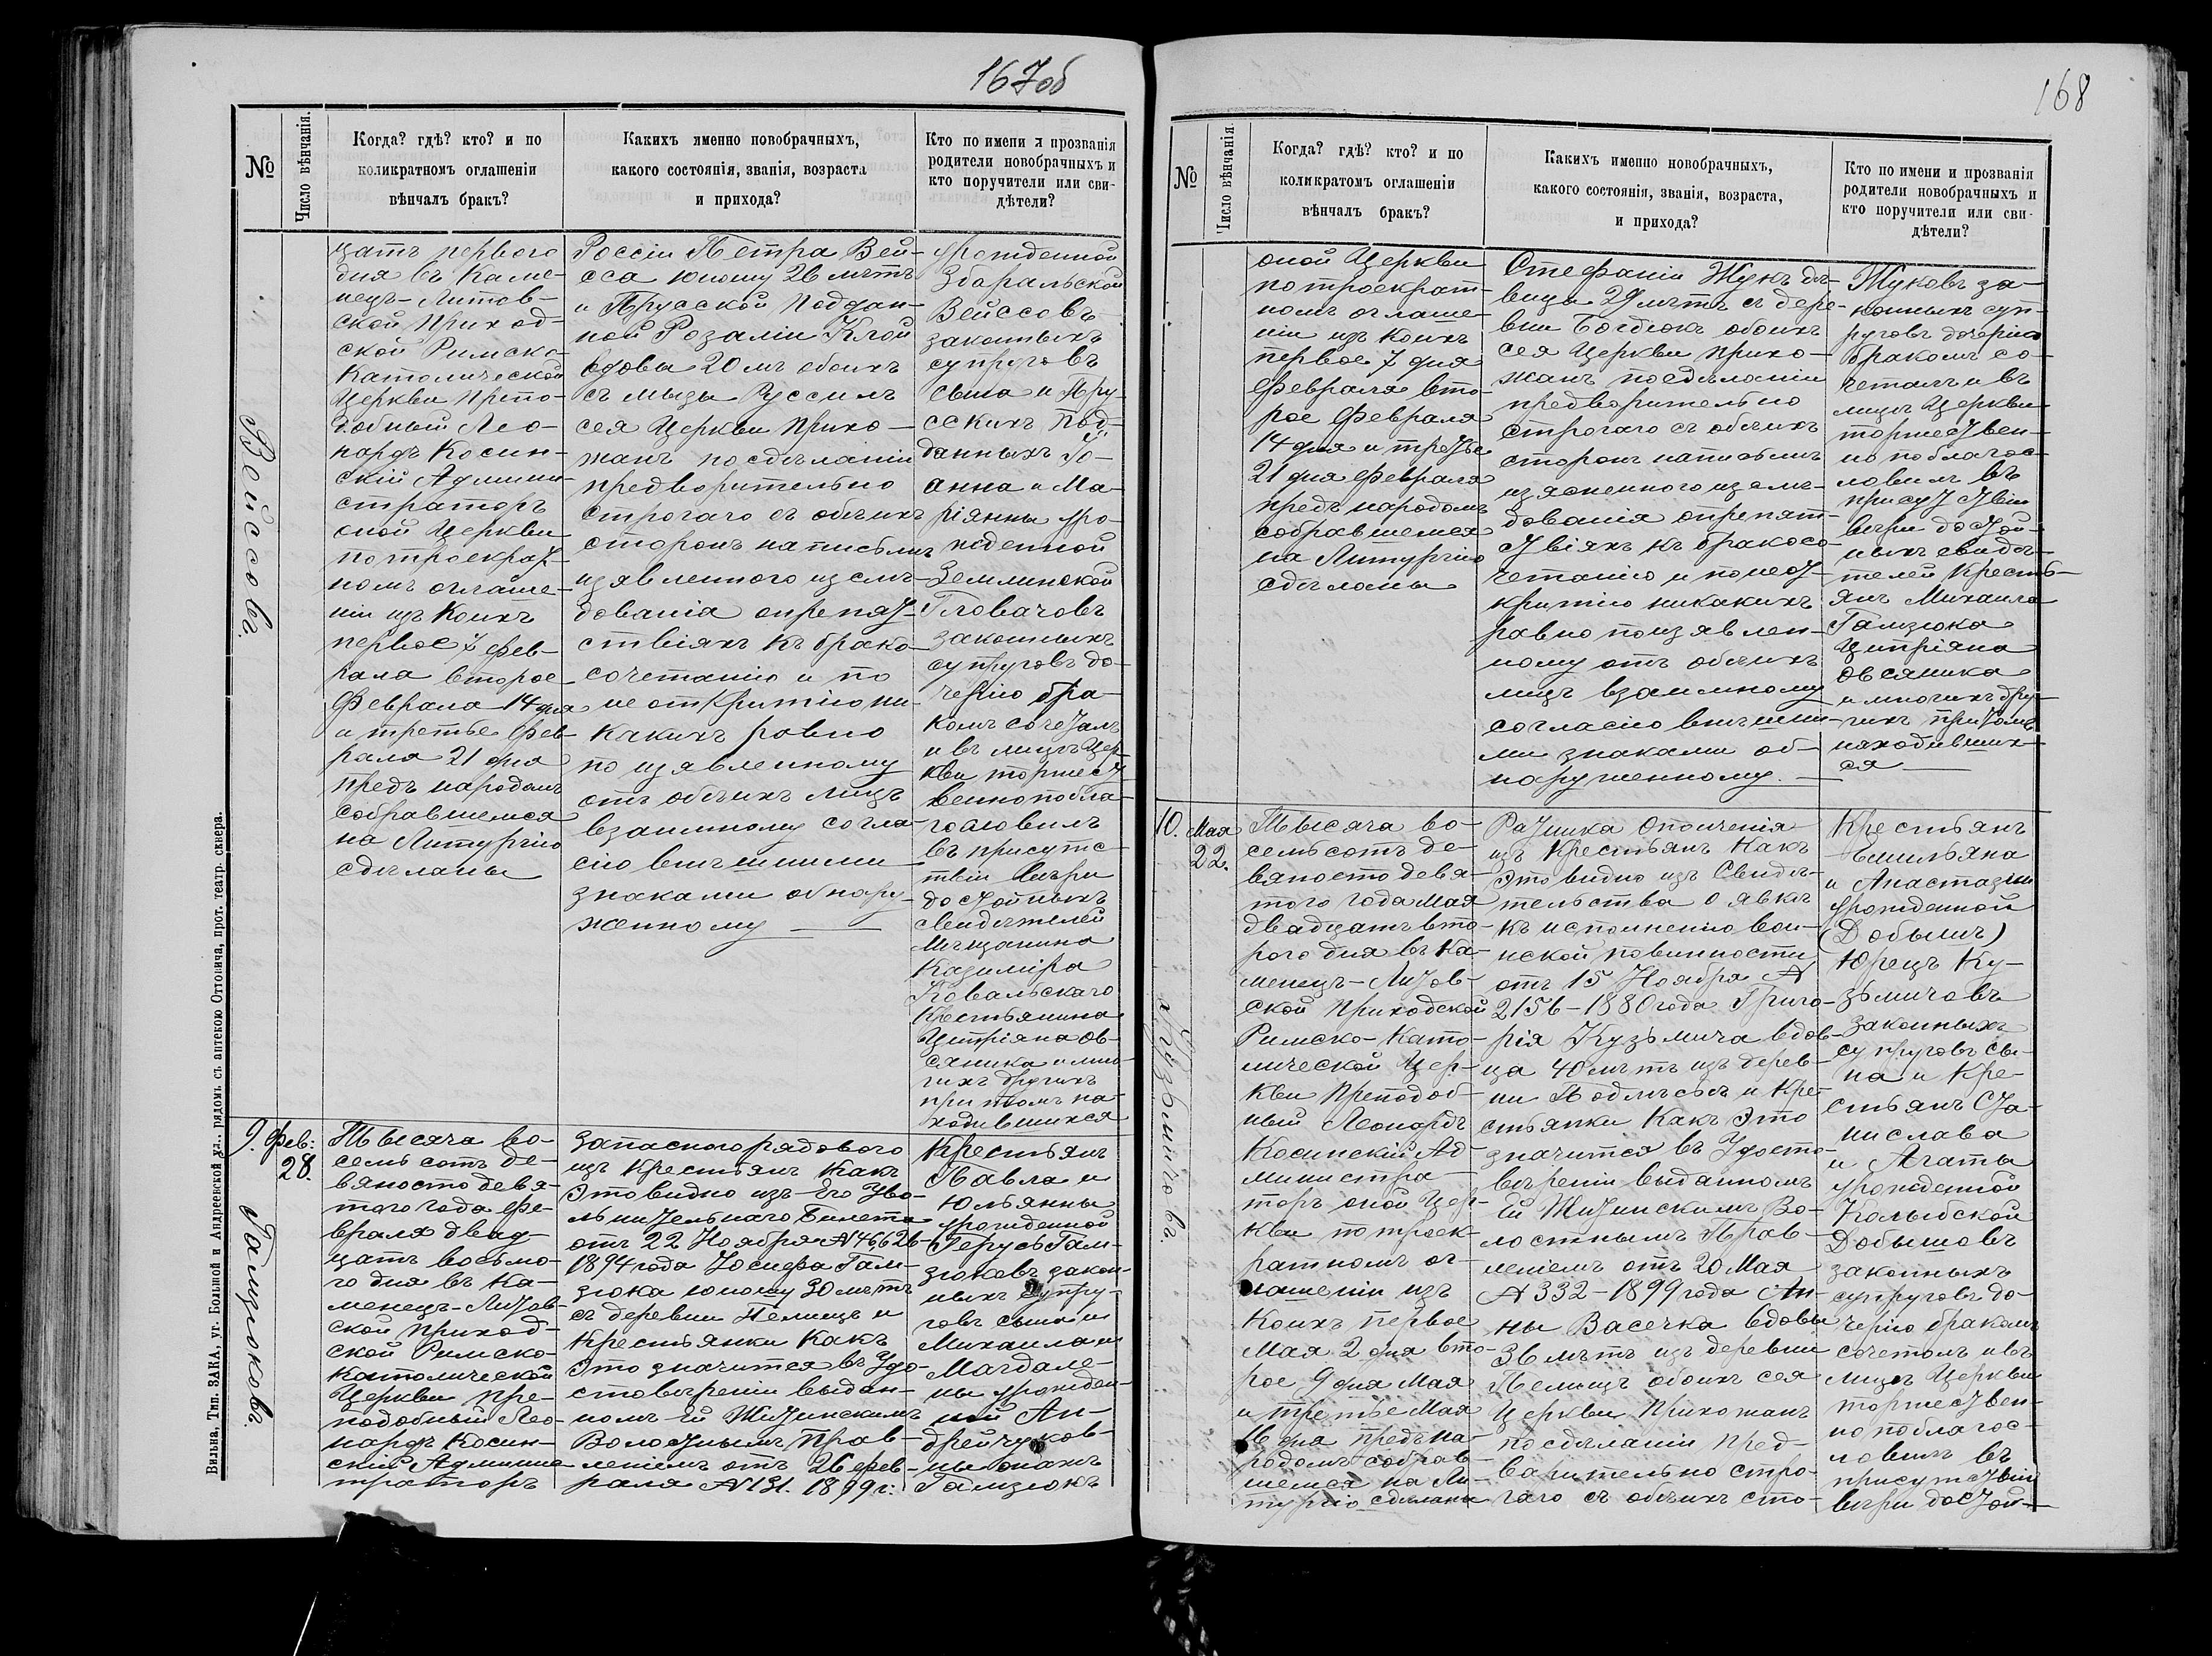 167об
№
Число вѣнчанія.
Когда? гдѣ? кто? и по
коликратномъ оглашеніи
вѣнчалъ бракъ?
Какихъ именно новобрачныхъ,
какого состоянія, званія, возраста
и прихода?
Кто по имени и прозванія
родители новобрачныхъ и
кто поручители или сви-
дѣтели?
Вейсовъ.
цать первого
дня въ Каме-
нецъ-Литов-
ской Приход-
ской Римско-
Католической
Церкви Препо-
добный Лео-
нардъ Косин-
скій Админи-
страторъ
оной Церкви
по троекрат-
номъ оглаше-
ніи изъ коихъ
первое 7 фев-
рала второе
Февраля 14 дня
и третье Фев-
раля 21 дня
предъ народомъ
собравшемся
на Литургію
сдѣланы
Россіи Петра Вей-
сса юношу 26 лѣтъ
и Прусской Поддан-
ной Розаліи Клой
вдовы 20 лѣ обоихъ
съ мызы Руссилъ
сея Церкви Прихо-
жанъ по сдѣланіи
предворительно
строгаго съ обѣихъ
сторонъ на письмѣ
изявленного изслѣ-
дованія опрепят-
ствіяхъ къ брако-
сочетанію и по
не открытію ни-
какихъ ровно
по изявленному
отъ обѣихъ лицъ
взаимному согла-
сію внѣшними
знаками обнару-
женному
урожденной
Зборальской
Вейссовъ
законныхъ
супруговъ
сына и Пру-
сскихъ Под-
данныхъ Іо-
анна и Ма-
ріянны уро-
жденной
Землинской
Гловачовъ
законныхъ
супруговъ до-
черію бра-
комъ сочеталъ
и въ лицѣ Цер-
кви торжест-
венно побла-
гословилъ
въ присутс-
твіи вѣры
достойныхъ
свидѣтелей
Мѣщанина
Казиміра
Ковальскаго
Крестьянина
Ципріяна Ов-
сяника и мно-
гихъ другихъ
при томъ на-
ходившихся
9.
Фев:
28.
Гамзюковъ.
Тысяча во-
семь сотъ де-
вяносто девя-
того года Фе-
враля двад-
цать восьмо-
го дня въ Ка-
менецъ-Литов-
ской Приход-
ской Римско-
Католической
Церкви Пре-
подобный Лео-
нардъ Косин-
скій Админис-
траторъ
Запасного рядового
изъ Крестьянъ Какъ
это видно изъ Его Уво-
льнительнаго Билета
отъ 22 Ноября № 46,626-
1894 года Іосифа Гам-
зюка юношу 30 лѣтъ
съ деревни Пелищъ и
Крестьянки Какъ
Это значится въ Удо-
стовѣреніи выдан-
номъ Ей Житинскимъ
Волостнымъ Прав-
леніемъ отъ 26 фев-
раля № 131. 1899 г:
Крестьянъ
Павла и
Юльянны
урожденной
Герусь Гам-
зюковъ закон-
ныхъ супру-
говъ сына и
Михаила и
Магдале-
ны урожден-
ной Ан-
дрейчуков-
ны
Гамзюкъ
Вильна, Тип. ЗАКА, уг. Большой и Андреевской ул., рядомъ съ аптекою Оттовича, прот. театр. сквера.
168
№
Число вѣнчанія.
Когда? гдѣ? кто? и по
коликратомъ оглашеніи
вѣнчалъ бракъ?
Какихъ именно новобрачныхъ,
какого состоянія, званія, возраста,
и прихода?
Кто по имени и прозванія
родители новобрачныхъ и
кто поручители или сви-
дѣтели?
оной Церкви
по троекрат-
номъ оглаше-
ніи изъ коихъ
первое 7 дня
Февраля вто-
рое Февраля
14 дня и третье
21 дня Февраля
предъ народомъ
собравшемся
на Литургію
сдѣланы
Стефаніи Жукъ дѣ-
вицы 29 лѣтъ съ дере-
вни Богдюкъ обоихъ
сея Церкви прихо-
жанъ посдѣланіи
предворительно
строгаго съ обѣихъ
сторонъ написьмѣ
изясненного изслѣ-
дованія опрепят-
ствіяхъ къ бракосо-
четанію и понеот-
критію никакихъ
равно поизявлен-
ному отъ обѣихъ
лицъ взаимному
согласію внѣшни-
ми знаками об-
наруженному.
Жуковъ за-
конныхъ суп-
руговъ дочерію
бракомъ со-
четалъ и въ
лицѣ Церкви
торжествен-
но поблагос-
ловилъ въ
присутствіи
вѣры достой-
ныхъ свидѣ-
телей Кресть-
янъ Михаила
Гамзюка
Ципріяна
Овсяника
и многихъ дру-
гихъ притомъ
находивших-
ся
10.
Мая
22.
Кузьмичовъ.
Тысяча во-
семьсотъ де-
вяносто девя-
того года Мая
двадцать вто-
рого дня въ Ка-
менецъ-Литов-
ской Приходской
Римско-Като-
лической Цер-
кви Преподоб-
ный Леонардъ
Косинскій Ад-
министра-
торъ оной Цер-
кви по троек-
ратномъ ог-
лашеніи изъ
Коихъ первое
Мая 2 дня вто-
рое 9 дня Мая
и третье Мая
16 дня предъ на-
родомъ собрав-
шемся на Ли-
тургію сдѣланы
Ратника Ополченія
изъ Крестьянъ Какъ
Это видно изъ Свидѣ-
тельства о явкѣ
къ исполненію вои-
нской повинности
отъ 15 Ноября №
2156-1880 года Григо-
рія Кузьмича вдов-
ца 40 лѣтъ изъ дерев-
ни Подлѣсья и Кре-
стьянки Какъ Это
значится въ Удосто-
вѣреніи выданномъ
Ей Житинскимъ Во-
лостнымъ Прав-
леніемъ отъ 20 Мая
№ 332-1899 года Ан-
ны Васечка вдовы
36 лѣтъ изъ деревни
Пелищъ обоихъ сея
Церкви Прихожанъ
по сдѣланіи Пред-
варительно стро-
гаго съ обѣихъ сто-
Крестьянъ
Емильяна
и Анастазіи
урожденной
(Добышъ)
Юрецъ Ку-
зьмичовъ
законныхъ
супруговъ сы-
на и Кре-
стьянъ Ста-
нислава
и Агаты
урожденной
Калыбской
Добышовъ
законныхъ
супруговъ до-
черію бракомъ
сочеталъ и въ
лицѣ Церкви
торжествен-
но поблагос-
ловилъ въ
присутствіи
вѣры достой-